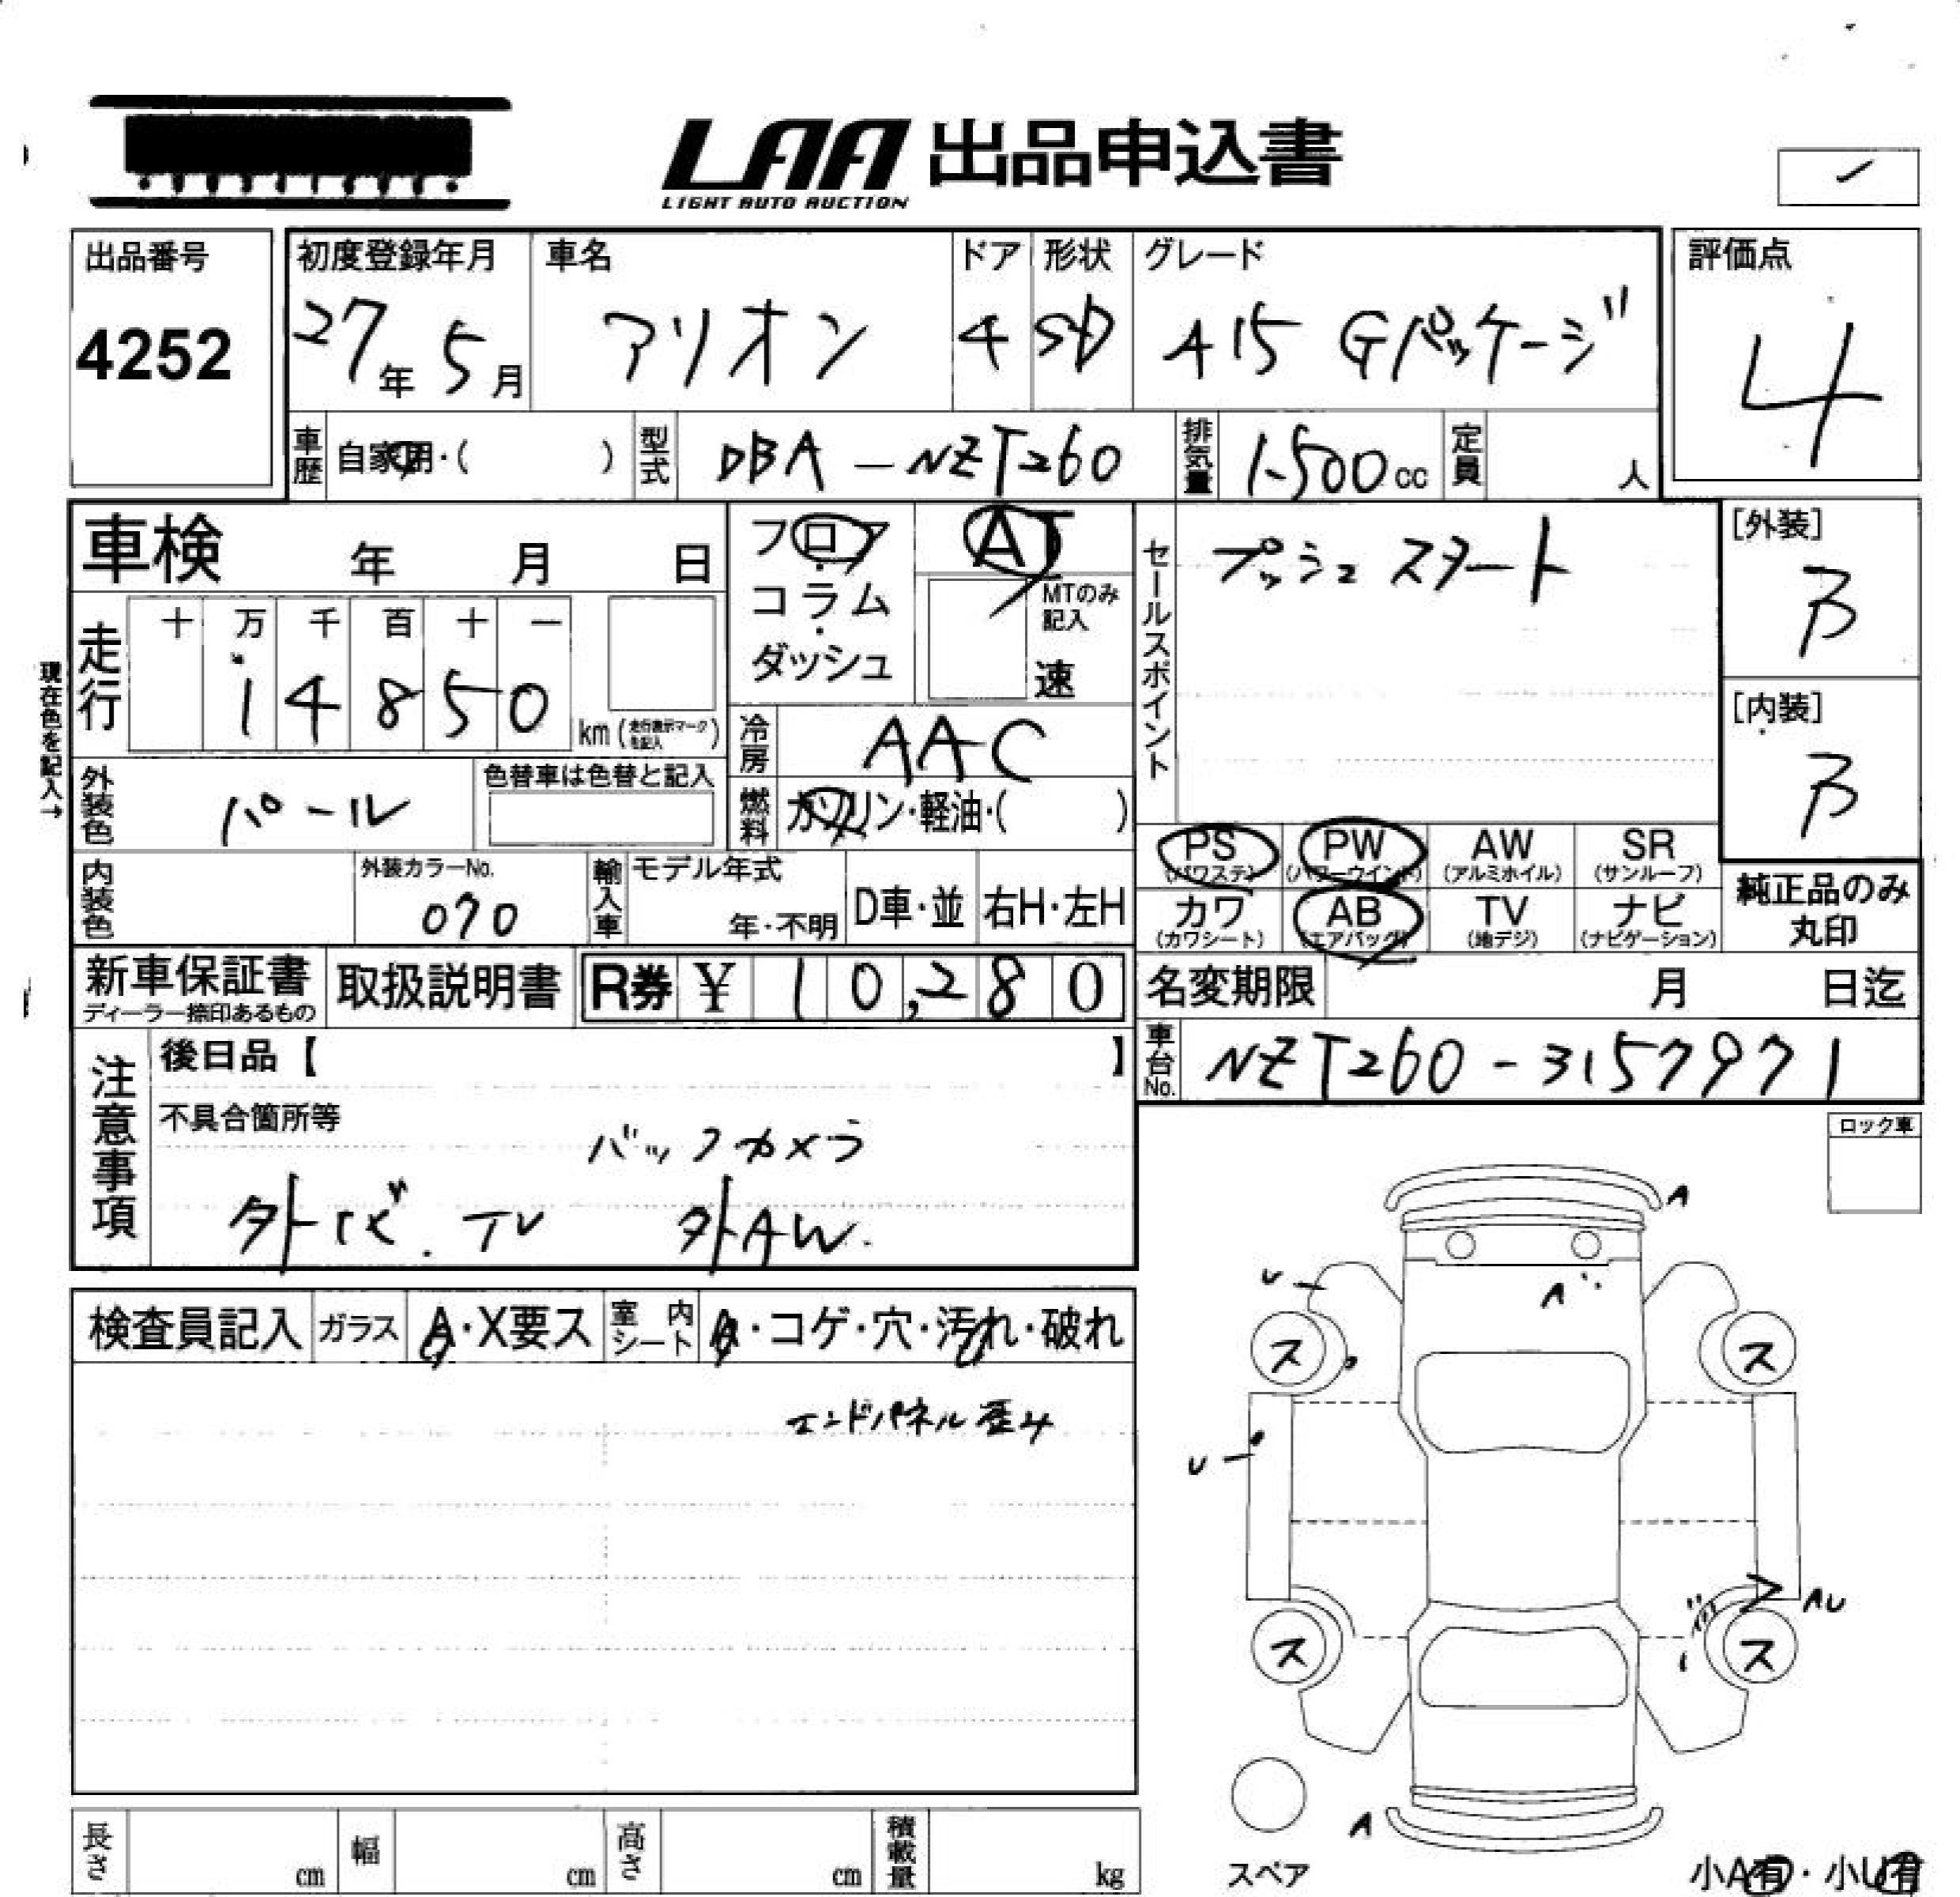 LAA 出品申込書
LIGHT AUTO AUCTION
出品番号
4252
初度登録年月 車名 ドア 形状 グレード 評価点
27年 5月 アリオン 4 SD A15 Gパッケージ 4
車歴 自家用・( ) 型式 DBA-NZT260 排気量 1500cc 定員 人
車検 年 月 日
フロア・コラム・ダッシュ
AT
MTのみ記入
速
セールスポイント
プッシュスタート
[外装]
B
[内装]
B
走行 十 万 千 百 十 一
14850 km (走行表示マークを記入)
現在色を記入→
冷房 AAC
外装色 パール 色替車は色替と記入
燃料 ガソリン・軽油・( )
PS (パワステ) PW (パワーウインド) AW (アルミホイル) SR (サンルーフ)
カワ (カワシート) AB (エアバッグ) TV (地デジ) ナビ (ナビゲーション)
純正品のみ丸印
内装色 外装カラーNo. 070 輸入車 モデル年式 年・不明 D車・並 右H・左H
新車保証書 ディーラー捺印あるもの 取扱説明書 R券 ¥ 10,280
名変期限 月 日迄
車台No. NZT260-3157971
注意事項
後日品【 】
不具合箇所等
バックカメラ
外ナビ. TV 外AW.
ロック車
検査員記入 ガラス A・X要ス 室内シート A・コゲ・穴・汚れ・破れ
エンドパネル歪み
A
U
A
ス ス
U
AU
ス ス
A
スペア
小A有・小U有
長さ cm 幅 cm 高さ cm 積載量 kg